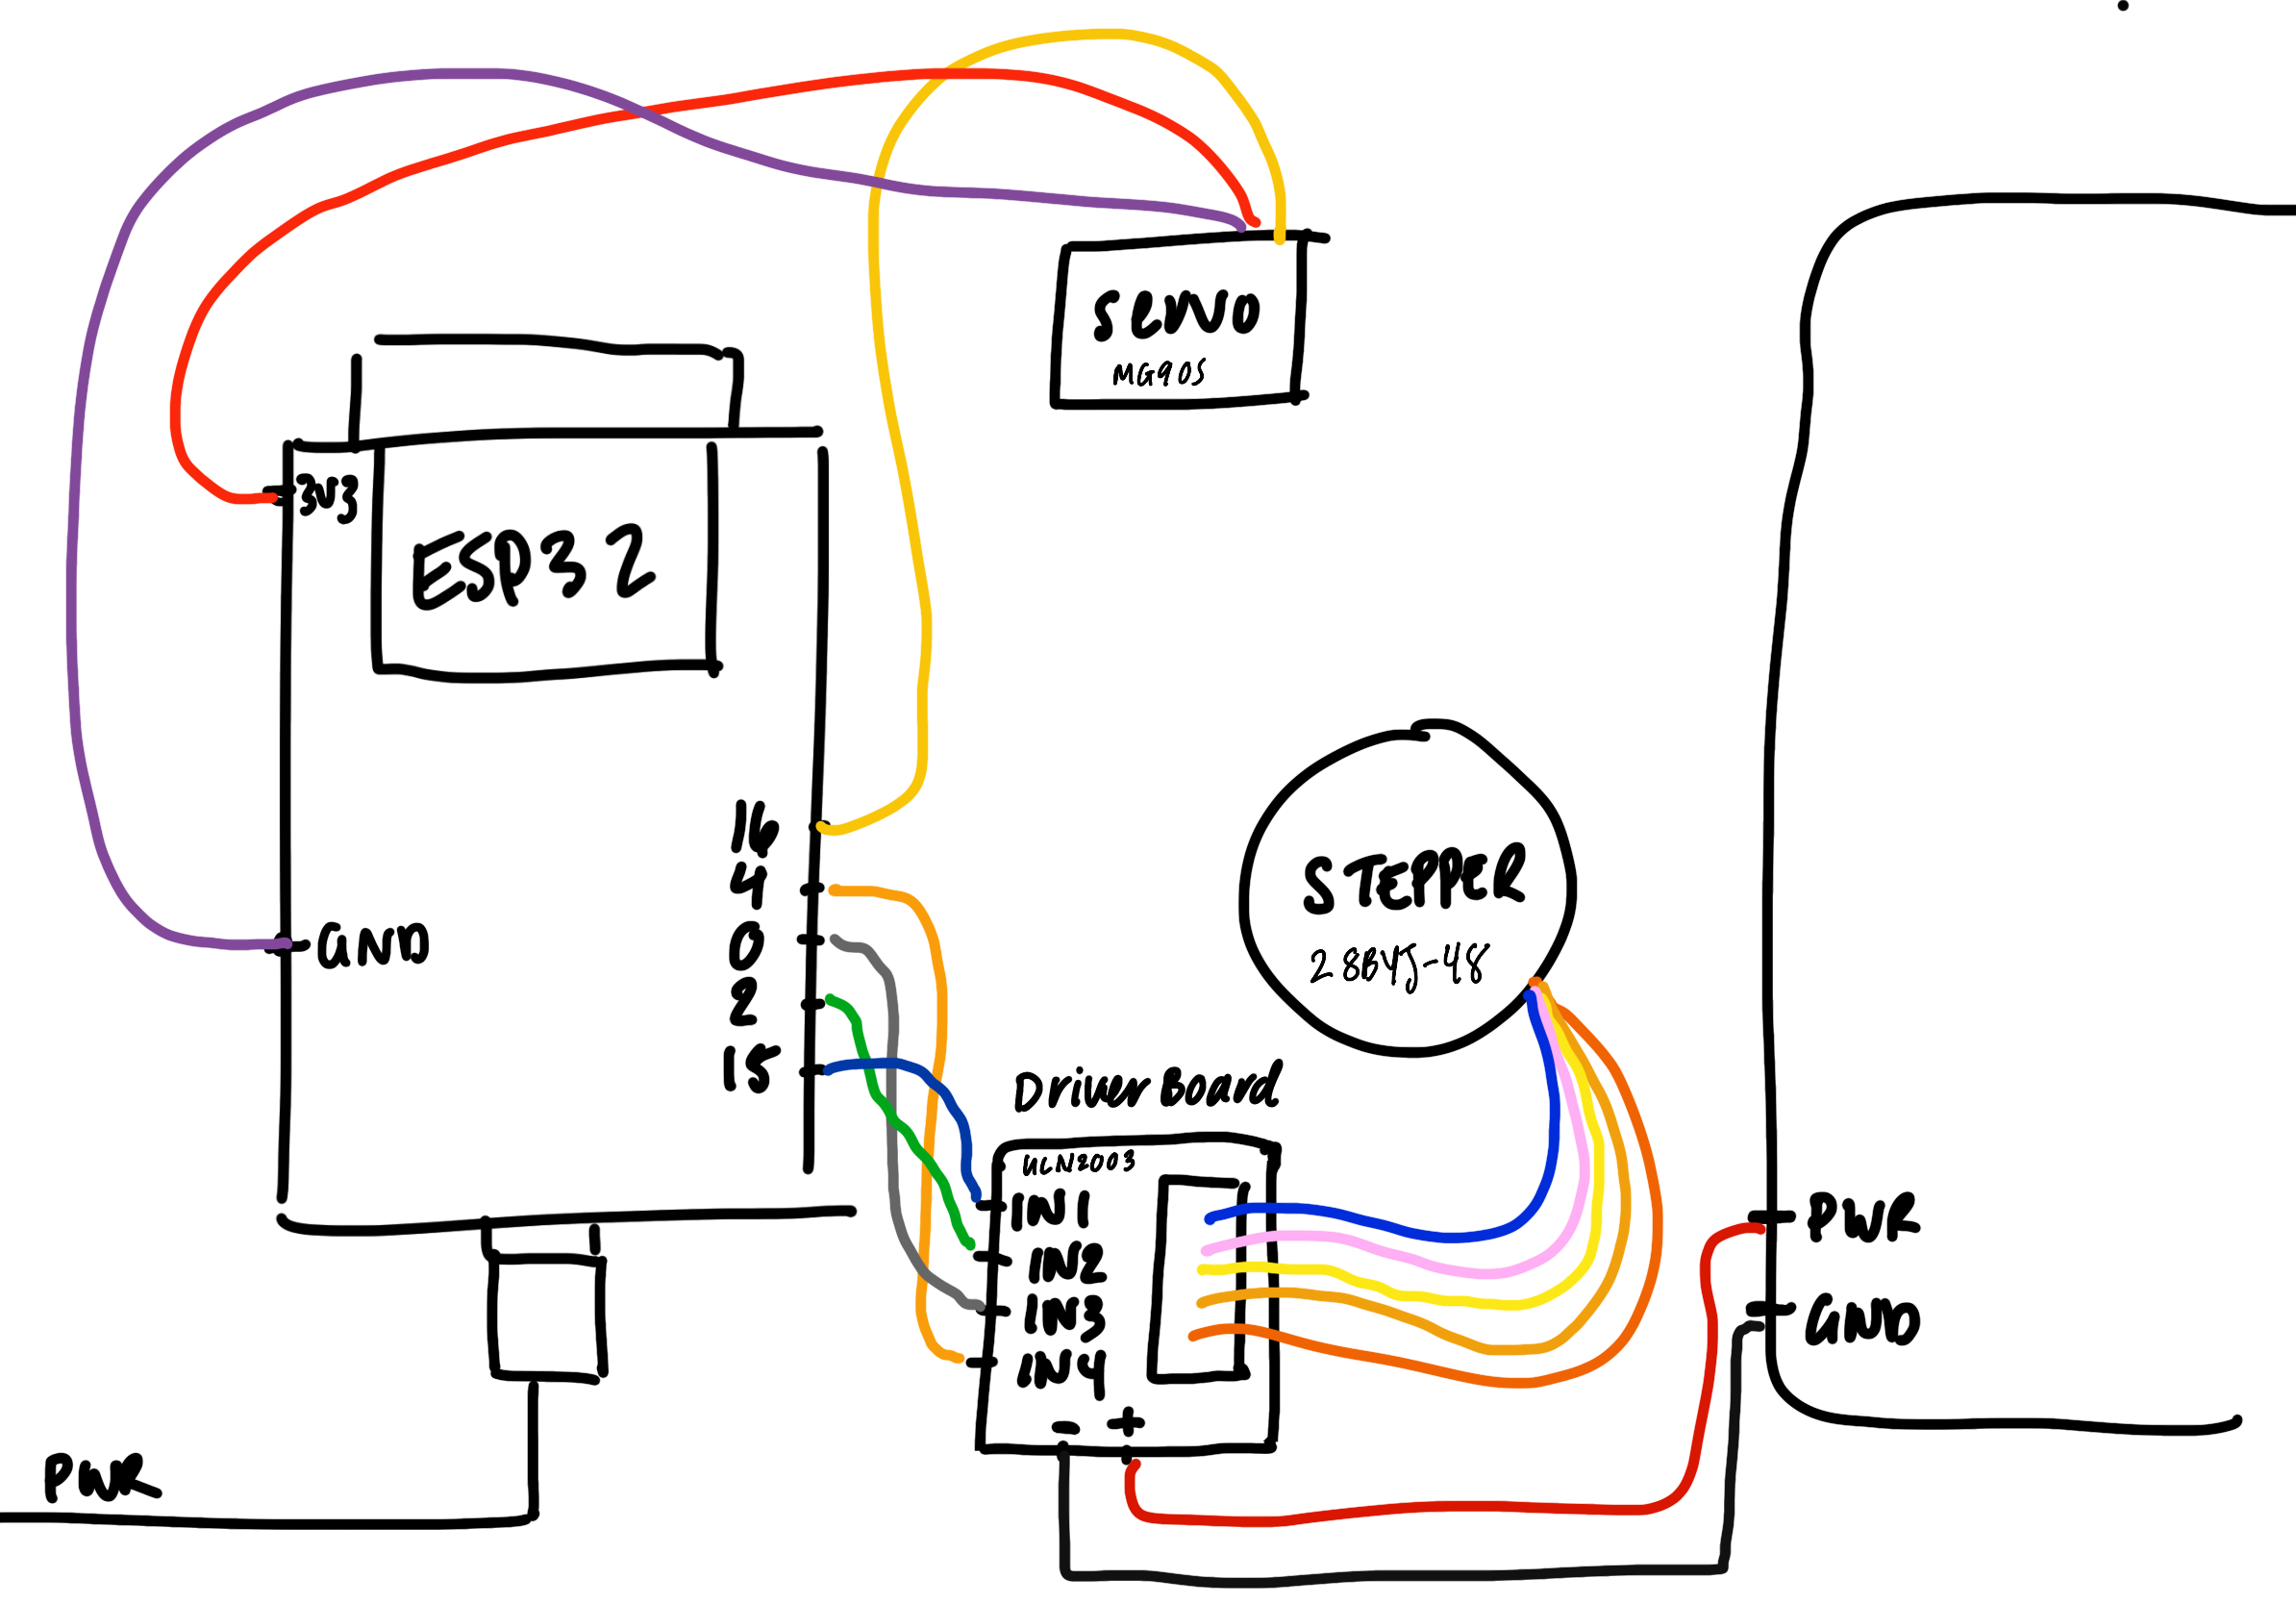 SERVO
MG90S
3V3
ESP32
16
4
0
2
15
GND
STEPPER
28BYJ-48
Driver Board
ULN2003
IN1
IN2
IN3
IN4
- +
PWR
GND
PWR